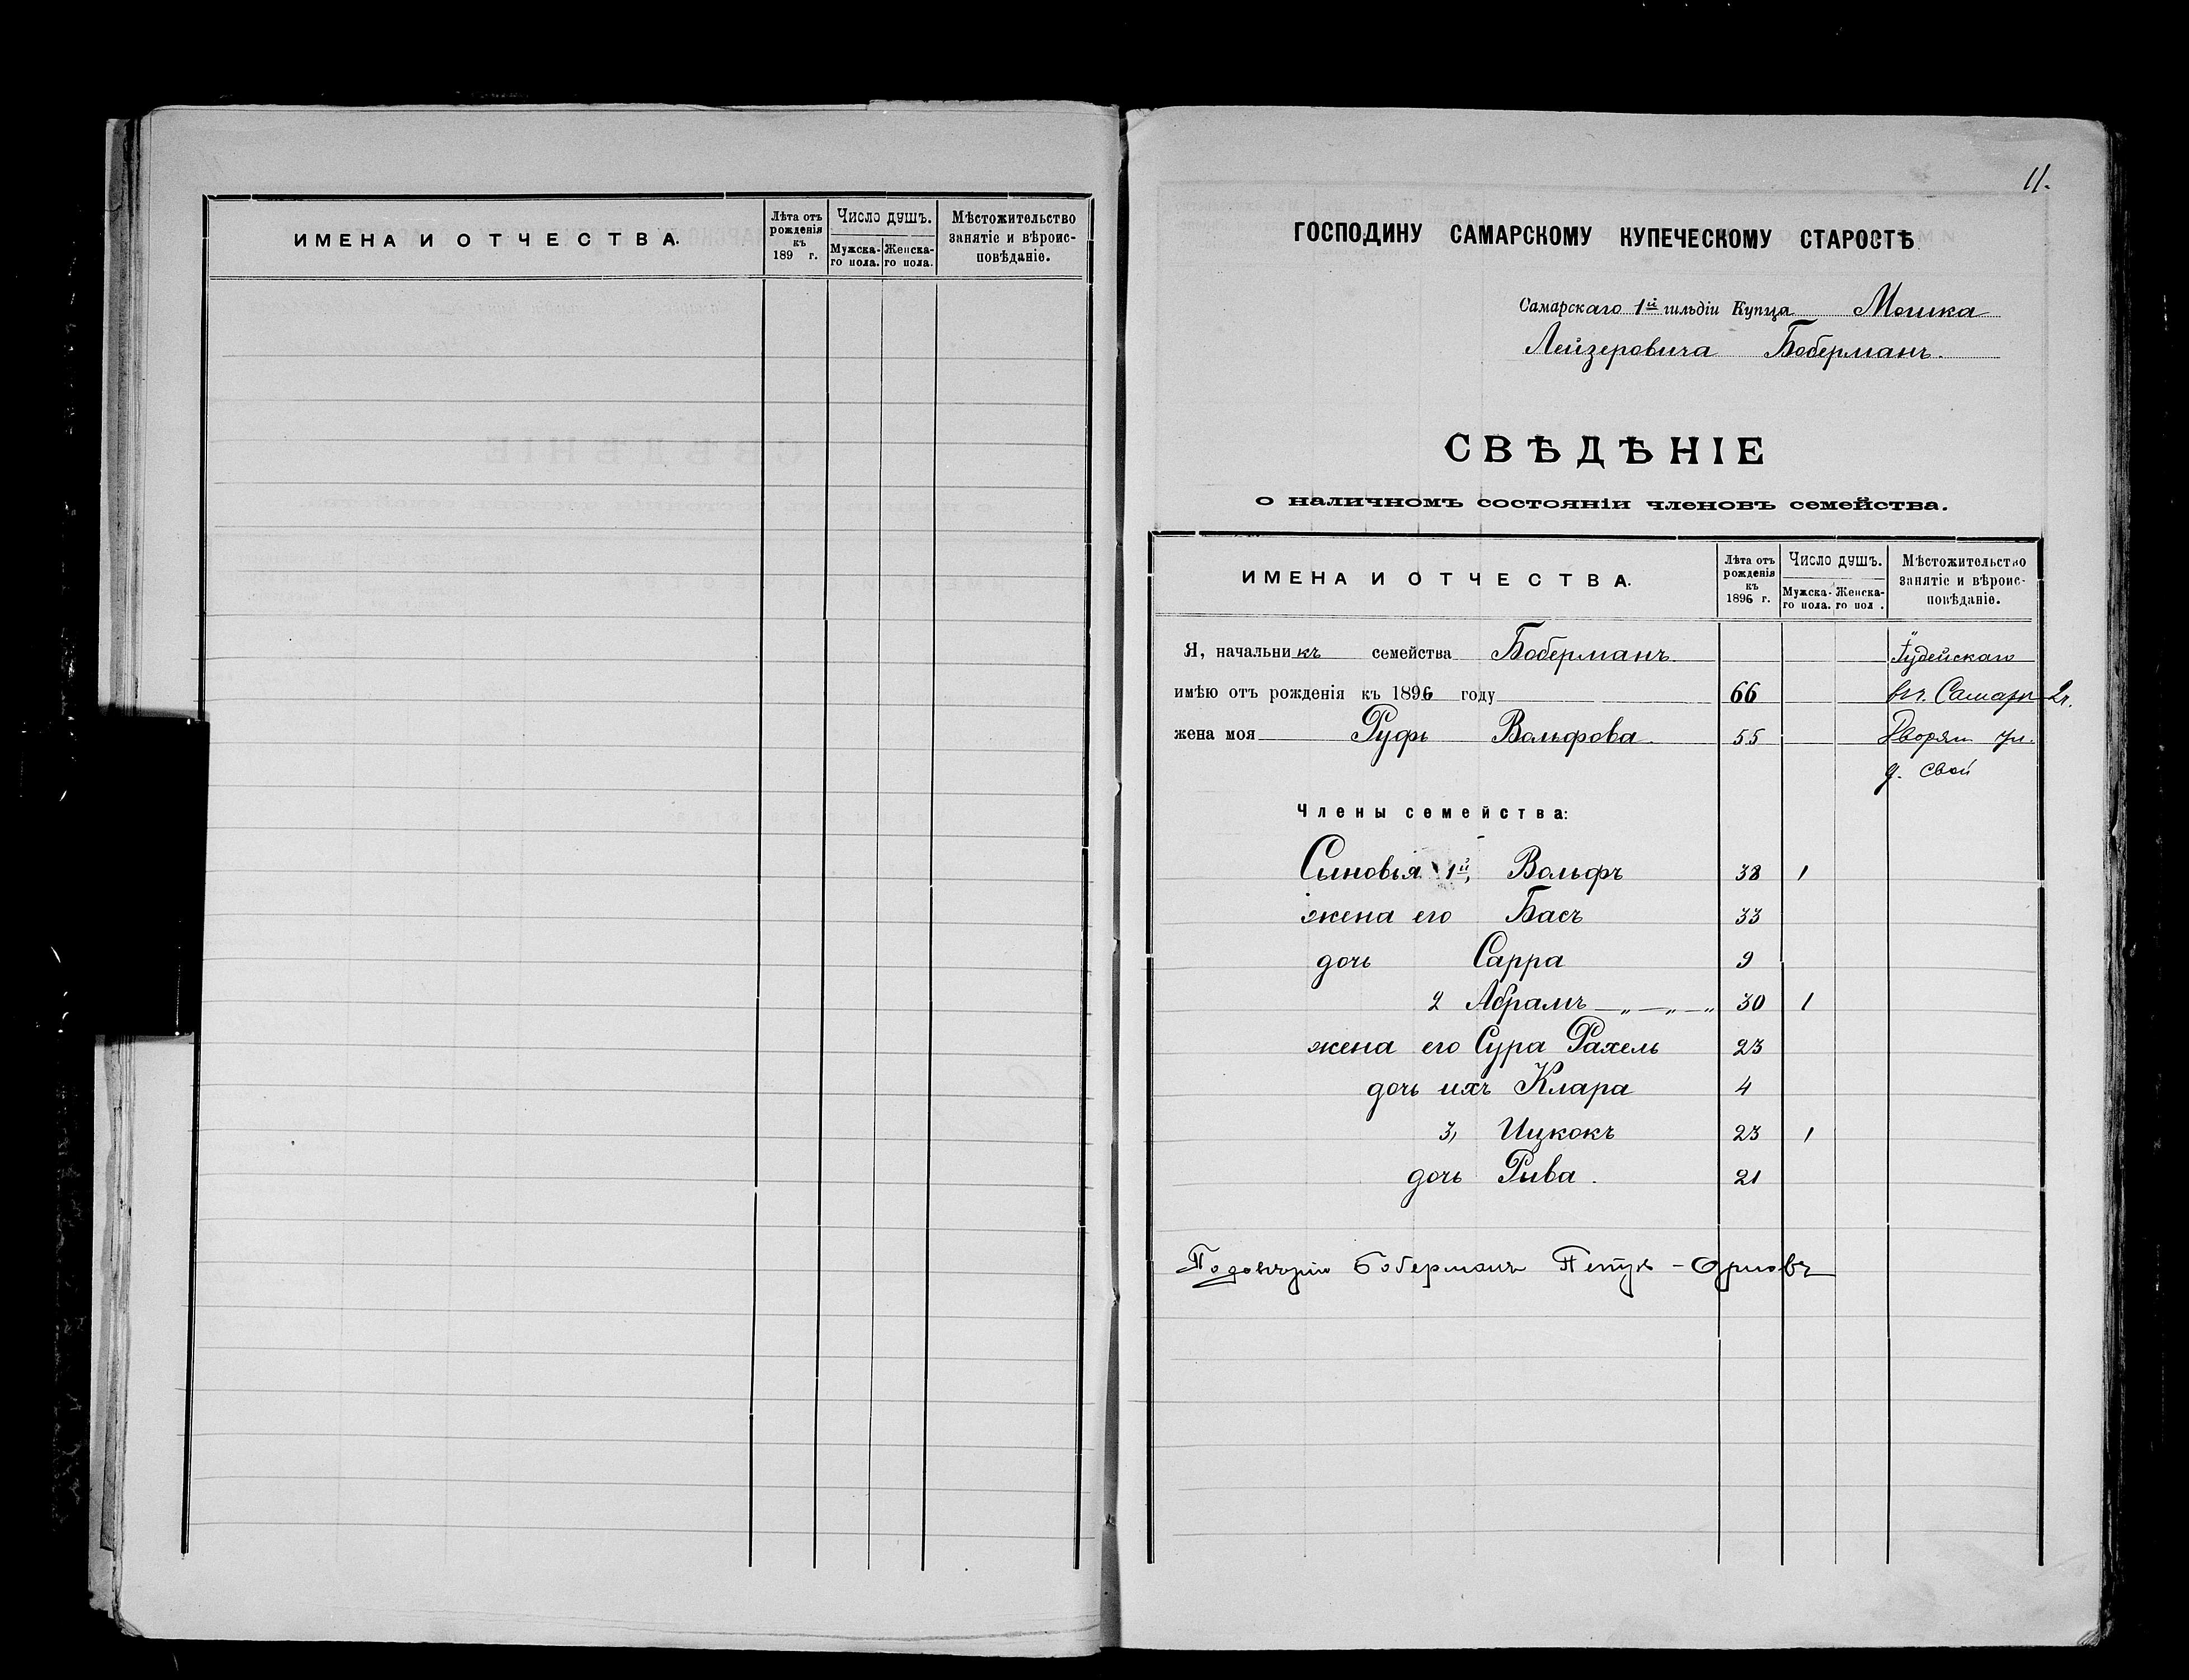 ИМЕНА И ОТЧЕСТВА.
Лѣта отъ рожденія къ 189 г.
Число душъ.
Мужска-го пола.
Женска-го пола.
Мѣстожительство занятіе и вѣроис-повѣданіе.
11.
ГОСПОДИНУ САМАРСКОМУ КУПЕЧЕСКОМУ СТАРОСТѢ
Самарскаго 1й гильдіи Купца Мошка
Лейзеровича Боберманъ.
СВѢДѢНІЕ
о наличномъ состояніи членовъ семейства.
ИМЕНА И ОТЧЕСТВА.
Лѣта отъ рожденія къ 1896 г.
Число душъ.
Мужска-го пола.
Женска-го пол .
Мѣстожительство занятіе и вѣроис-повѣданіе.
Я, начальникъ семейства Боберманъ Іудейскаго
имѣю отъ рожденія къ 1896 году 66 въ г. Самарѣ 2 ч.
жена моя Руфь Вольфова 55 Дворян ул.
д. свой
Члены семейства:
Сыновья 1й, Вольфъ 38 1
жена его Бася 33
дочь Сарра 9
2 Абрамъ „ — „ — „ 30 1
жена его Сура Рахель 23
дочь ихъ Клара 4
3, Ицкокъ 23 1
дочь Рива. 21
Боберманъ